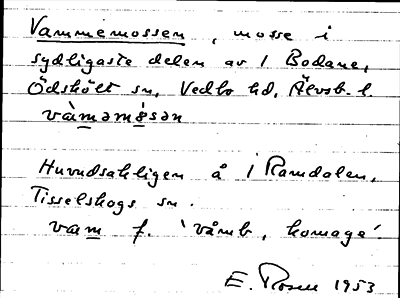 Vammemossen, mosse i
sydligaste delen av 1 Bodane,
Ödskölt sn, Vedbo hd, Älvsb. l.
vàməmòsən
Huvudsakligen å 1 Ramdalen,
Tisselskogs sn.
vam f. 'våmb, komage'.
E. Rosen 1953